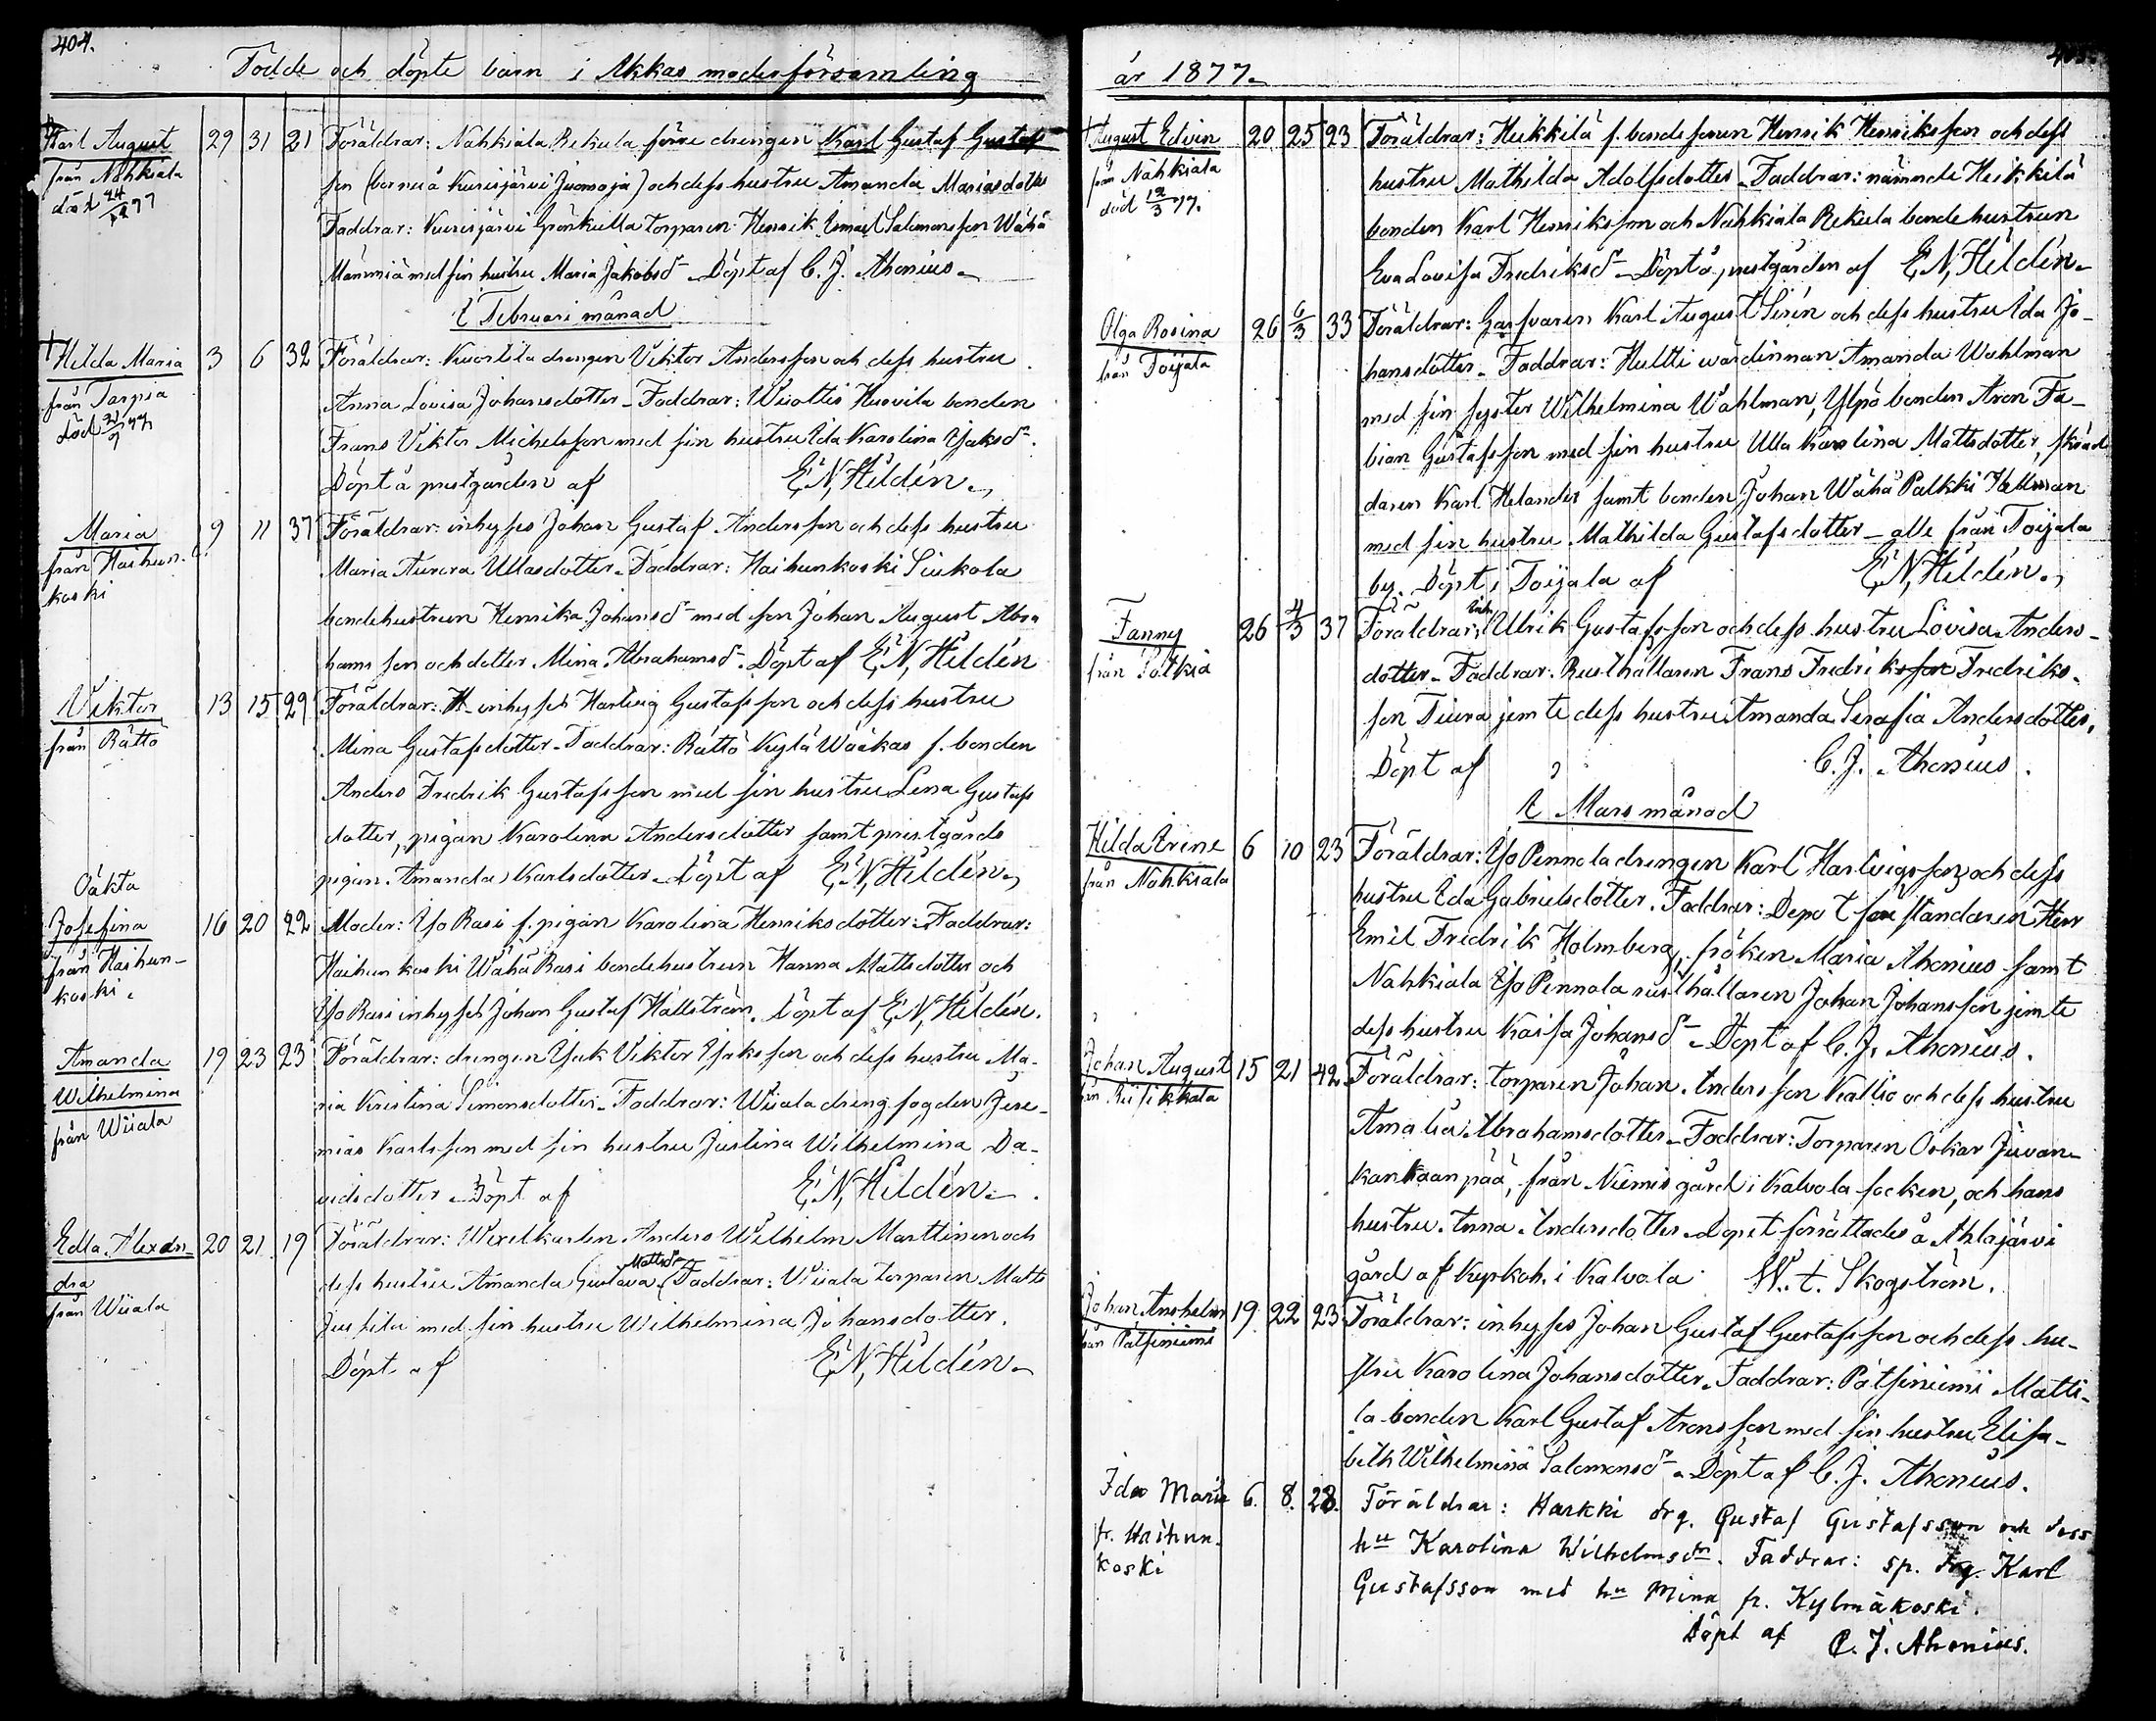 404.
Födde och döpte barn i Akkas modersförsamling
Karl August 29 31 21 Föräldrar: Nahkiala Rekula förre drengen Karl Gustaf Gustafs
från Nahkiala son och dess hustru Amanda Mariasdotter
död
Faddrar: Kurisjärvi Grönkulla torparen Henrik Ismael Salomonsson Wähä
med sin hustru Maria Jakobsdr Döpt af C. J. Ahonius.
I Februari månad
† Hilda Maria 3 6 32 Föräldrar: drengen Viktor Andersson och dess hustru
från Tarpia Anna Lovisa Johansdotter. Faddrar: bonden
död Frans Viktor Michelsson med sin hustru Ida Karolina Isaksdr.
Döpt å prestgården af E. N. Hildén.
Maria 9 11 37 Föräldrar: inhyses Johan Gustaf Andersson och dess hustru
från Haihun- Maria Aurora Ullasdotter. Faddrar: Haihunkoski Siukola
koski
bondehustrun Henrika Johansdr med son Johan August Abra
hams son och dotter Mina Abrahamsdr. Döpt af E. N. Hildén
Viktor 13 15 29 Föräldrar: inhyses Hartvig Gustafsson och dess hustru
från Rättö Mina Gustafsdotter. Faddrar: Rättö Wääkas f. bonden
Anders Fredrik Gustafsson med sin hustru Lena Gustafs
dotter, pigan Karolina Andersdotter samt prestgårds
pigan Amanda Karlsdotter. Döpt af E. N. Hildén.
Oäkta
Josefina 16 20 22 Moder: Yso Rasi f. pigan Karolina Henriksdotter. Faddrar:
från Haihun- Haihunkoski Wähä Rasi bondehustrun Hanna Mattsdotter och
koski. Yso Rasi inhyses Johan Gustaf Hällström. Döpt af E. N. Hildén.
Amanda 19 23 23 Föräldrar: drengen Isak Viktor Isaksson och dess hustru Ma-
Wilhelmina ria Kristina Simonsdotter. Faddrar: Wiiala drengfogden Jere-
från Wiiala mias Karlsson med sin hustru Justina Wilhelmina Da-
vidsdotter. Döpt af E. N. Hildén.
Edla Alexan- 20 21 19 Föräldrar: Wexelkarlen Anders Wilhelm Marttinen och
dra dess hustru Amanda Gustava Mattsdr Faddrar: Wiiala torparen Matts
från Wiiala med sin hustru Wilhelmina Johansdotter.
Döpt af E. N. Hildén.
år 1877.
† August Edvin 20 25 23 Föräldrar: Heikkilä f. bonde sonen Henrik Henriksson och dess
från Nahkiala hustru Mathilda Adolfsdotter. Faddrar: nämnde Heikkilä
död 12/3 77. bonden Karl Henriksson och Nahkiala Rekula bondehustrun
Eva Lovisa Fredriksdr. Döpt å prestgården af E. N. Hildén.
Olga Rosina 26 6/3 33 Föräldrar: Garfvaren Karl August Sirén och dess hustru Ida Jo-
från Toijala hansdotter. Faddrar: Hultti wärdinnan Amanda Wahlman
med sin syster Wilhelmina Wahlman, Ylpö bonden Aron Fa-
bian Gustafsson med sin hustru Ulla Karolina Mattsdotter, skräd
daren Karl Helander samt bonden Johan Wähä Palkki Hallman
med sin hustru Mathilda Gustafsdotter – alle från Toijala
by. Döpt i Toijala af E. N. Hildén.
Fanny 26 4/3 37 Föräldrar: Ulrik Gustafsson och dess hustru Lovisa Anders-
från Sotkia dotter. Faddrar: Rusthållaren Frans Fredriksson Fredriks-
son Tiura jemte dess hustru Amanda Serafia Andersdotter.
Döpt af C. J. Ahonius.
I Mars månad
Hilda Irene 6 10 23 Föräldrar: Yso Pennola drengen Karl Hartvigsson och dess
från Nahkiala hustru Eda Gabrielsdotter. Faddrar: Depot föreståndaren Herr
Emil Fredrik Holmberg, fröken Maria Ahonius samt
Nahkiala Yso Pennola rusthållaren Johan Johansson jemte
dess hustru Kaisa Johansdr. Döpt af C. J. Ahonius.
Johan August 15 21 42 Föräldrar: torparen Johan Andersson Kallio och dess hustru
från Riisikkala Amalia Abrahamsdotter. Faddrar: Torparen Oskar Juvan-
kankaanpää, från Niemis gård i Kalvola socken, och hans
hustru Anna Andersdotter. Dopet förrättades å Ahlajärvi
gård af Kyrkoh. i Kalvola W. t. Skogström.
Johan Anshelm 19 22 23 Föräldrar: inhyses Johan Gustaf Gustafsson och dess hu-
från Pätsiniemi stru Karolina Johansdotter. Faddrar: Pätsiniemi Matti-
la bonden Karl Gustaf Aronsson med sin hustru Elisa-
beth Wilhelmina Salomonsdr. Döpt af C. J. Ahonius.
Ida Maria 6. 8. 28. Föräldrar: Harkki drg. Gustaf Gustafsson och dess
fr. Haihun- hu Karolina Wilhelmsdr. Faddrar: sp. drg. Karl
koski Gustafsson med hu Mina fr. Kylmäkoski.
Döpt af C. J. Ahonius.